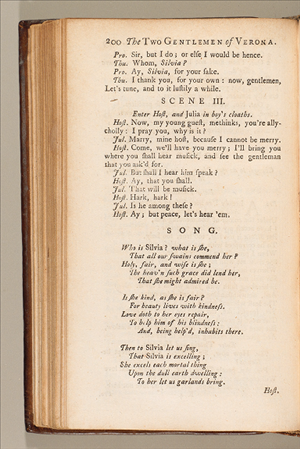 200 The TWO GENTLEMEN of VERONA.
Pro. Sir, but I do; or elſe I would be hence.
Thu. Whom, Silvia?
Pro. Ay, Silvia, for your ſake.
Thu. I thank you, for your own: now, gentlemen,
Let's tune, and to it luſtily a while.
SCENE III.
Enter Hoſt, and Julia in boy's cloaths.
Hoſt. Now, my young gueſt, methinks, you're ally-
cholly: I pray you, why is it?
Jul. Marry, mine hoſt, becauſe I cannot be merry.
Hoſt. Come, we'll have you merry; I'll bring you
where you ſhall hear muſick, and ſee the gentleman
that you aſk'd for.
Jul. But ſhall I hear him ſpeak?
Hoſt. Ay, that you ſhall.
Jul. That will be muſick.
Hoſt. Hark, hark!
Jul. Is he among theſe?
Hoſt. Ay; but peace, let's hear 'em.
SONG.
Who is Silvia? what is ſhe,
That all our ſwains commend her?
Holy, fair, and wiſe is ſhe;
The heav'n ſuch grace did lend her,
That ſhe might admired be.
Is ſhe kind, as ſhe is fair?
For beauty lives with kindneſs.
Love doth to her eyes repair,
To help him of his blindneſs:
And, being help'd, inhabits there.
Then to Silvia let us ſing,
That Silvia is excelling;
She excels each mortal thing
Upon the dull earth dwelling:
To her let us garlands bring.
Hoſt.